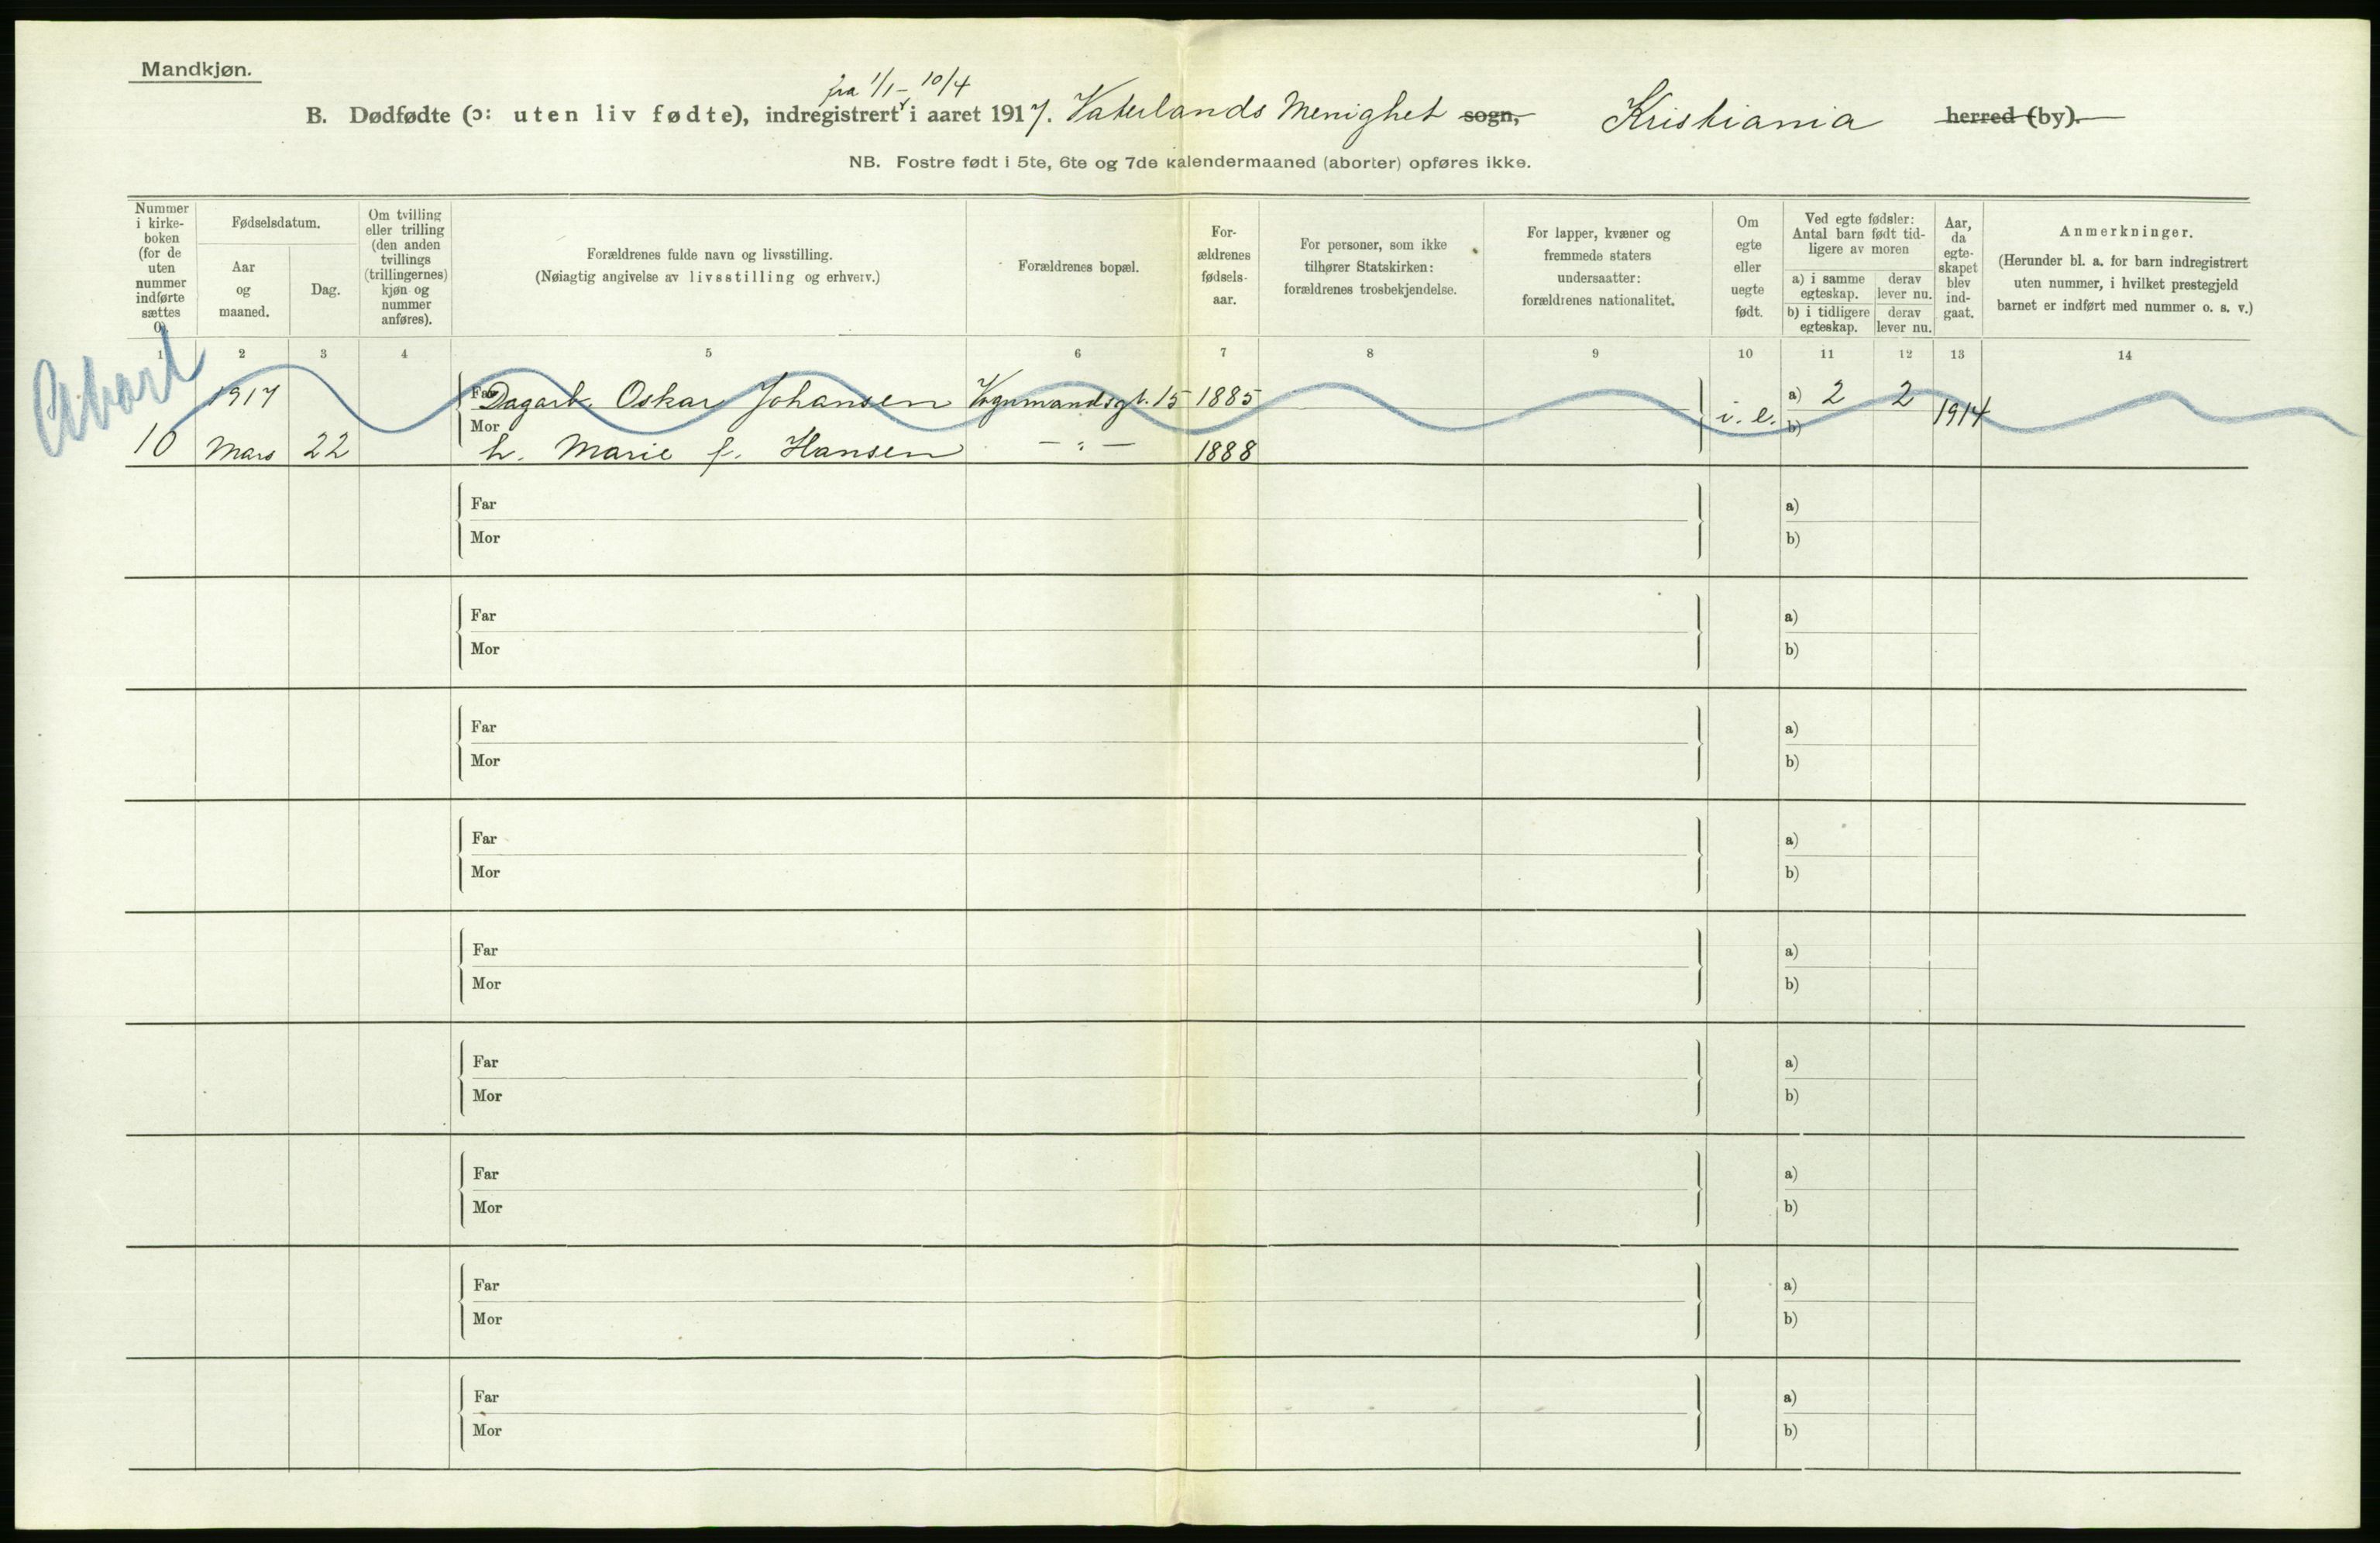 Mandkjøn.
fra 1/1 - 10/4
B. Dødfødte (ɔ: uten liv fødte), indregistrert i aaret 1917. Vaterlands Menighet sogn, Kristiania herred (by).
NB. Fostre født i 5te, 6te og 7de kalendermaaned (aborter) opføres ikke.
Nummer i kirke- boken (for de uten nummer indførte sættes 0).
Fødselsdatum.
Aar og maaned.
Dag.
Om tvilling eller trilling (den anden tvillings (trillingernes) kjøn og nummer anføres).
Forældrenes fulde navn og livsstilling.
(Nøiagtig angivelse av livsstilling og erhverv.)
Forældrenes bopæl.
For- ældrenes fødsels- aar.
For personer, som ikke tilhører Statskirken: forældrenes trosbekjendelse.
For lapper, kvæner og fremmede staters undersaatter: forældrenes nationalitet.
Om egte eller uegte født.
Ved egte fødsler: Antal barn født tid- ligere av moren
a) i samme egteskap.
derav lever nu.
b) i tidligere egteskap.
derav lever nu.
Aar, da egte- skapet blev ind- gaat.
Anmerkninger.
(Herunder bl. a. for barn indregistrert uten nummer, i hvilket prestegjeld barnet er indført med nummer o. s. v.)
1 2 3 4 5 6 7 8 9 10 11 12 13 14
Abort
1917 Far Dagarb. Oskar Johansen Vognmandsgt. 15 1885 i. e. a) 2 2 1914
b)
10 Mars 22 Mor h. Marie f. Hansen - " - 1888
Far a)
Mor b)
Far a)
Mor b)
Far a)
Mor b)
Far a)
Mor b)
Far a)
Mor b)
Far a)
Mor b)
Far a)
Mor b)
Far a)
Mor b)
Far a)
Mor b)